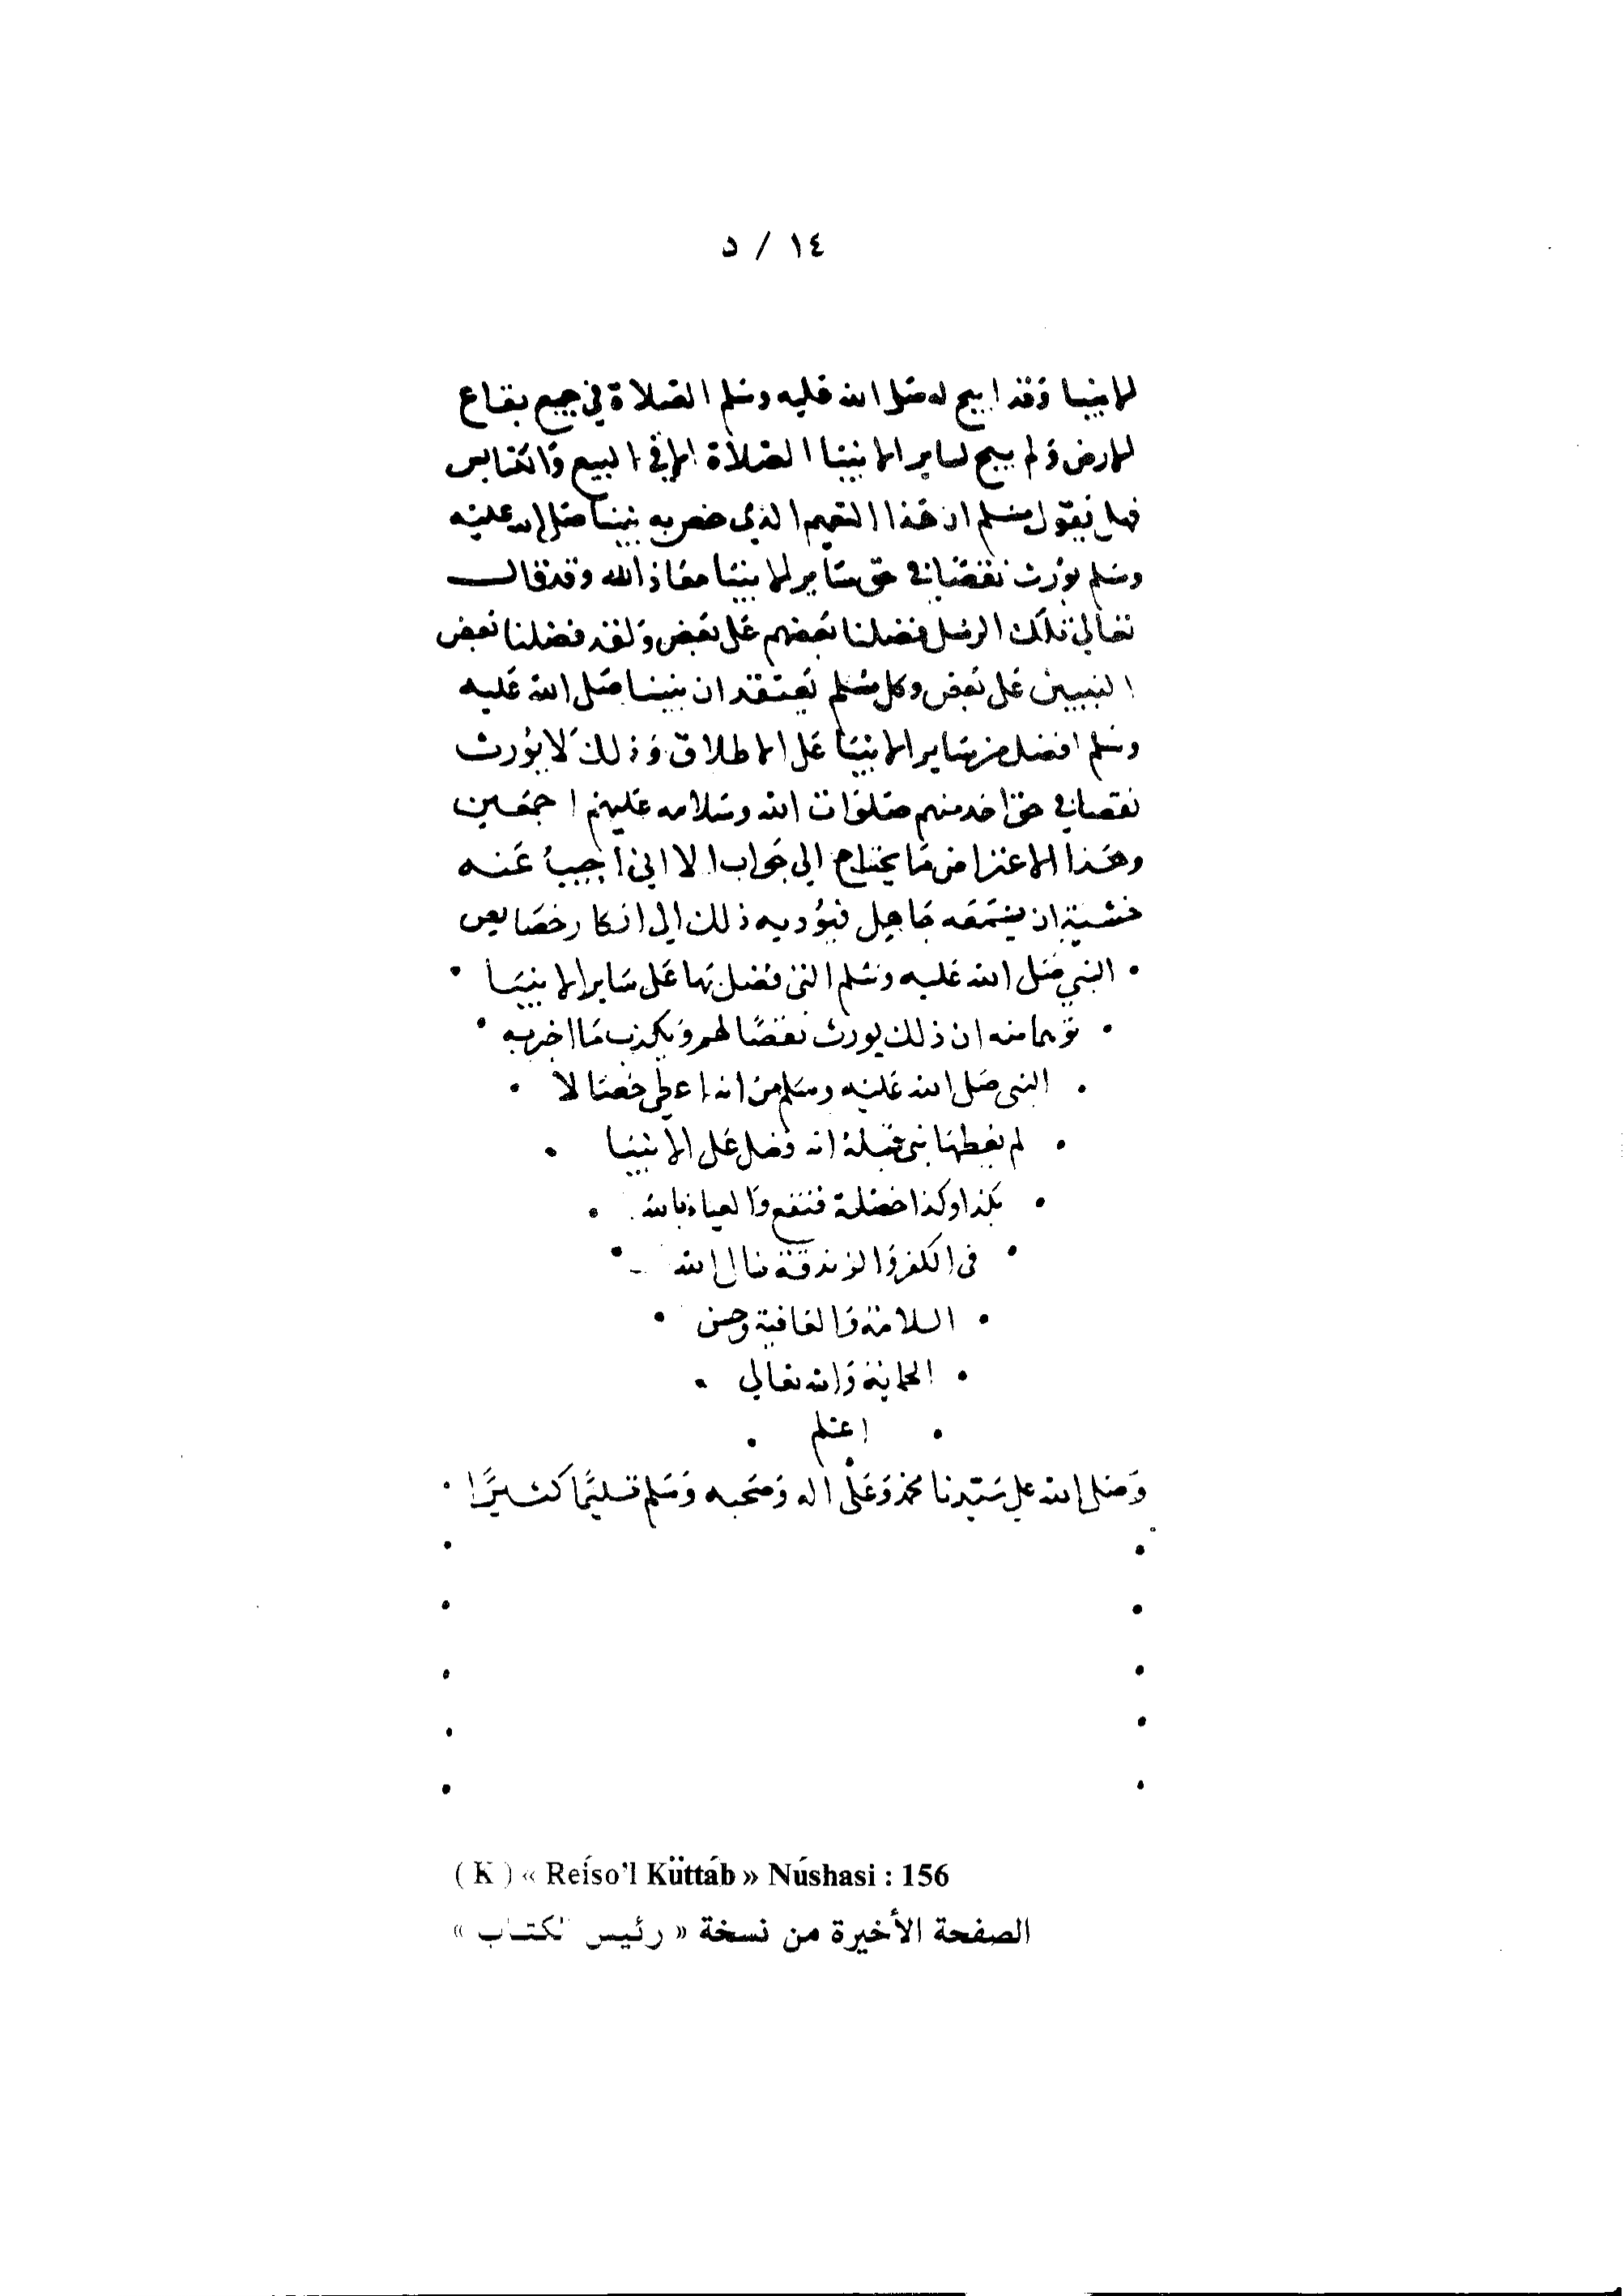 ١٤ / د
الانبيا وقد ابيح له صلى الله عليه وسلم الصلاة في جميع بقاع
الارض ولم يبح لساير الانبيا الصلاة الا في البيع والكنايس
فهل يقول مسلم ان هذا التعميم الذي خص به نبينا صلى الله عليه
وسلم يورث نقصا في حق ساير الانبيا معاذ الله وقد قال
تعالى تلك الرسل فضلنا بعضهم على بعض ولقد فضلنا بعض
النبيين على بعض وكل مسلم يعتقد ان نبينا صلى الله عليه
وسلم افضل من ساير الانبيا على الاطلاق وذلك لا يورث
نقصا في حق احد منهم صلوات الله وسلامه عليهم اجمعين
وهذا الاعتراض ما يحتاج الى جواب الا اني اجيب عنه
خشية ان يسمعه جاهل فيؤديه ذلك الى انكار خصايص
• النبي صلى الله عليه وسلم التي فضل بها على ساير الانبيا •
• توهما منه ان ذلك يورث نقصا لهم ويكذب ما اخبر به •
• النبي صلى الله عليه وسلم من انه اعطي خصالا •
• لم يعطها نبي قبله انه فضل على الانبيا •
• بكذا وكذا خصلة فيقع والعياذ بالله •
• في الكفر والزندقة نسال الله •
• السلامة والعافية وحسن •
• الخاتمة والله تعالى •
• اعلم •
وَصَلى الله على سَيّدنا محمد وَعَلَى اله وَصَحبه وَسَلم تسليمًا كثيرًا •
( K ) « Reíso'l Küttáb » Núshasi : 156
الصفحة الأخيرة من نسخة « رئيس الكتاب »